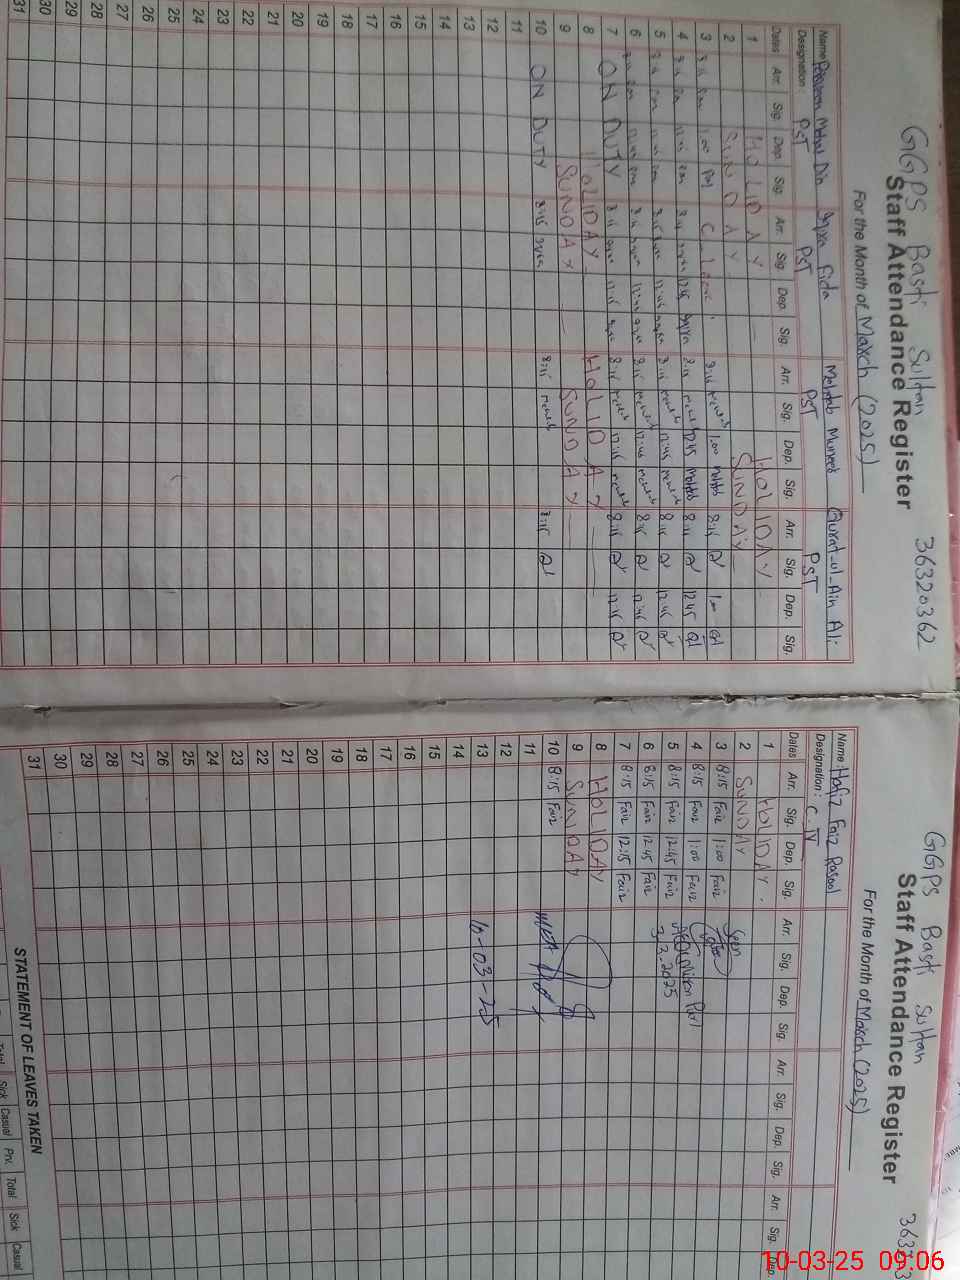 GGPS Basti Sultan 36320362
Staff Attendance Register
For the Month of March (2025)
Name: Perveen Mehar Din Iqra Fida Mehtab Muneeb Qurat-ul-Ain Ali
Designation: PST PST PST PST
Dates Arr. Sig. Dep. Sig. Arr. Sig. Dep. Sig. Arr. Sig. Dep. Sig. Arr. Sig. Dep. Sig.
1 HOLIDAY HOLIDAY
2 SUNDAY SUNDAY
3 8:15 1:00 C_Leave 8:15 1:00 8:15 1:00
4 8:15 12:45 8:15 12:45 8:15 12:45 Mehtab 8:15 12:45
5 8:15 12:45 8:15 12:45 8:15 12:45 8:15 12:45
6 8:15 12:45 8:15 12:45 8:15 12:45 8:15 12:45
7 ON DUTY 8:15 12:15 8:15 12:15 8:15 12:15
8 HOLIDAY HOLIDAY
9 SUNDAY SUNDAY
10 ON DUTY 8:15 8:15 8:15
11
12
13
14
15
16
17
18
19
20
21
22
23
24
25
26
27
28
29
30
31
GGPS Basti Sultan 363203
Staff Attendance Register
For the Month of March (2025)
Name: Hafiz Faiz Rasool
Designation: C.IV
Dates Arr. Sig. Dep. Sig. Arr. Sig. Dep. Sig. Arr. Sig. Dep. Sig. Arr. Sig. Dep.
1 HOLIDAY
2 SUNDAY
3 8:15 Faiz 1:00 Faiz Seen
4 8:15 Faiz 1:00 Faiz
5 8:15 Faiz 12:45 Faiz
6 8:15 Faiz 12:45 Faiz 3-3-2025
7 8:15 Faiz 12:15 Faiz
8 HOLIDAY
9 SUNDAY
10 8:15 Faiz
11
12
13 10-03-25
14
15
16
17
18
19
20
21
22
23
24
25
26
27
28
29
30
31
STATEMENT OF LEAVES TAKEN
Total Sick Casual Prv. Total Sick Casual
10-03-25 09:06